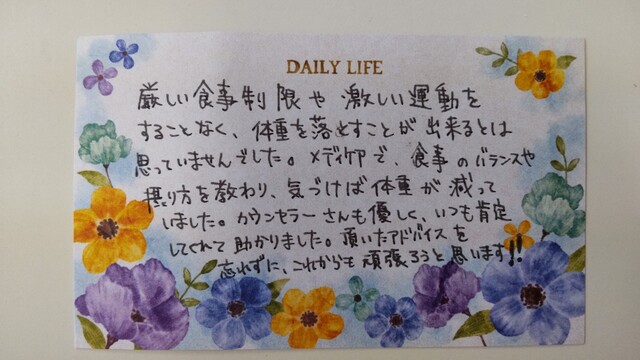 DAILY LIFE
厳しい食事制限や激しい運動を
することなく、体重を落とすことが出来るとは
思っていませんでした。メディケアで、食事のバランスや
摂り方を教わり、気づけば体重が減って
いました。カウンセラーさんも優しく、いつも肯定
してくれて助かりました。頂いたアドバイスを
忘れずに、これからも頑張ろうと思います!!